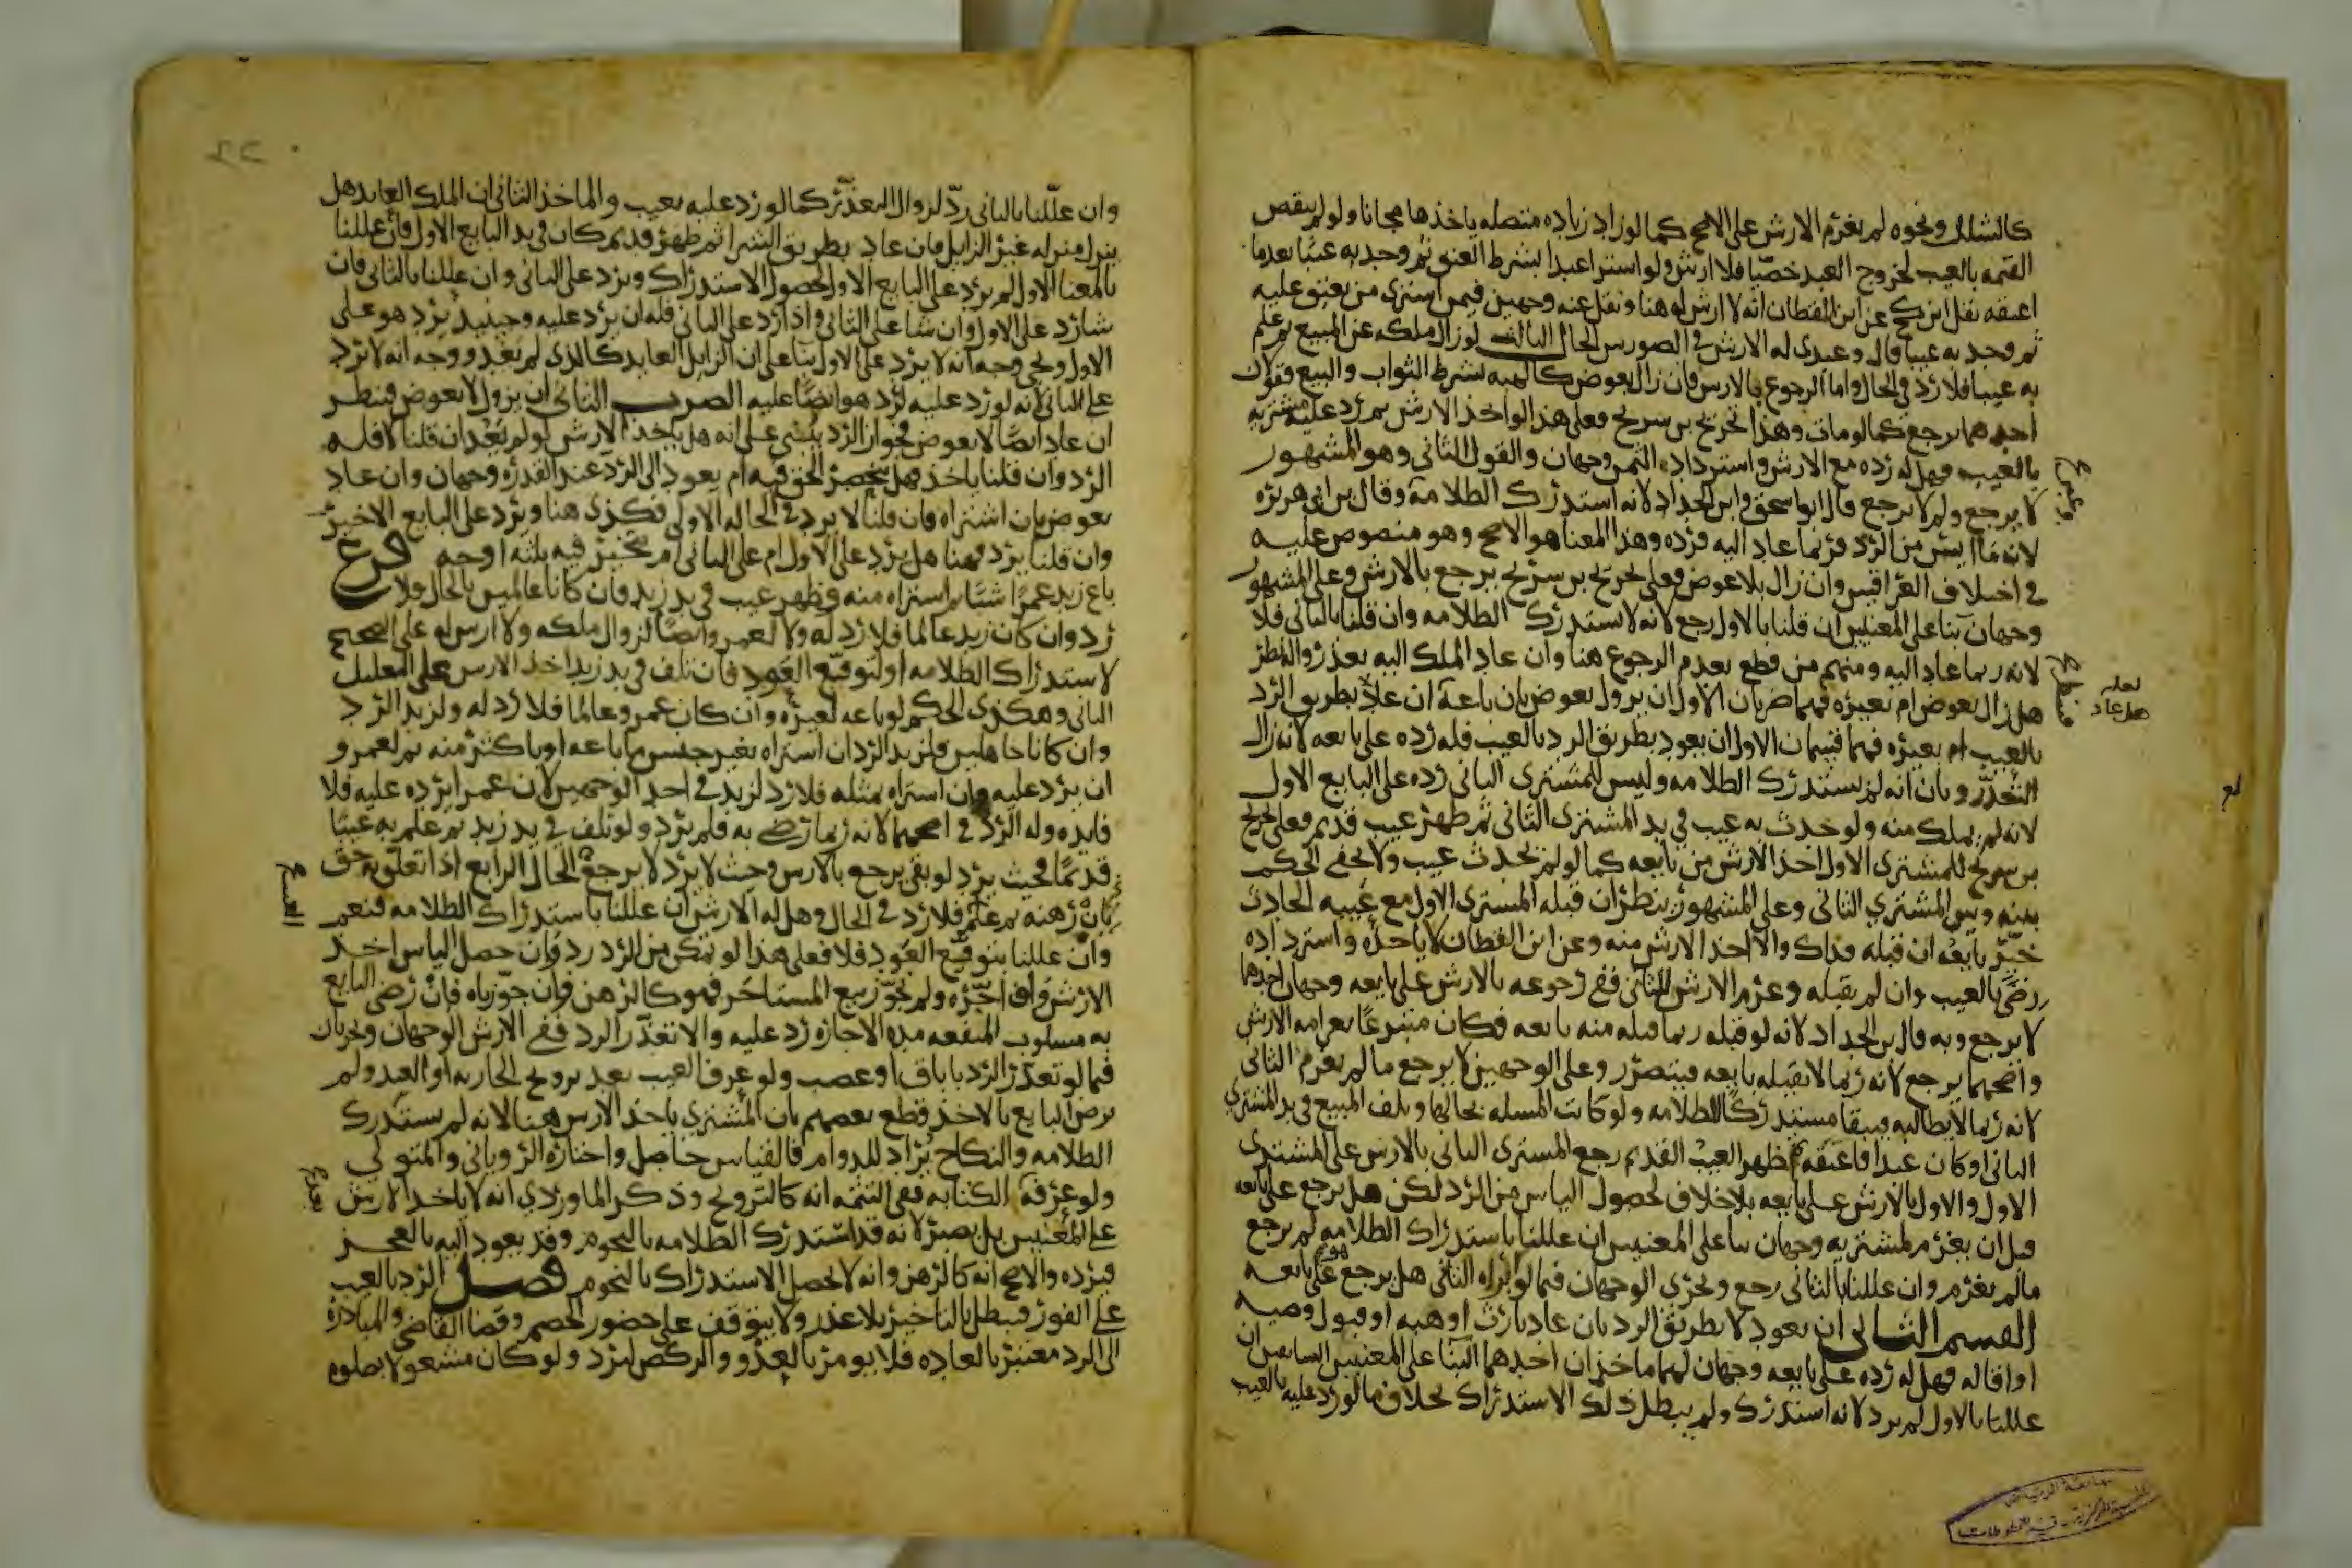 كالشلل ونحوه لم يغرم الارش على الاصح كما لو زاد زياده متصله ياخذها مجانا ولو لم ينقص
القيمه بالعيب لخروج العبد خصيا فلا ارش ولو اشترا عبدا بشرط العتق ثم وجد به عيبا بعدما
اعتقه نقل ابن كج عن ابن القطان انه لا ارش له هنا ونقل عنه وجهين فيمن اشترى من يعتق عليه
ثم وجد به عيبا قال وعندى له الارش في الصورتين الحال الثالث لو زال ملكه عن المبيع ثم علم
به عيبا فلا رد في الحال واما الرجوع بالارش فان زال بعوض كالهبه بشرط الثواب والبيع فقولان
احدهما يرجع كما لو مات وهذا تخريج بن سريج فعلى هذا لو اخذ الارش ثم رد عليه مشتريه
بالعيب فهل له رده مع الارش واسترداد الثمن وجهان والقول الثاني وهو المشهور
لا يرجع ولم لا يرجع قال ابو اسحق وابن الحداد لانه استدرك الظلامة وقال بن ابي هريره
لانه ما ايس من الرد فربما عاد اليه فرده وهذا المعنا هو الاصح وهو منصوص عليه
في اختلاف العراقيين وان زال بلا عوض فعلى تخريج بن سريج يرجع بالارش وعلى المشهور
وجهان بنا على المعنيين ان قلنا بالاول رجع لانه لا يستدرك الظلامه وان قلنا بالثاني فلا
لانه ربما عاد اليه ومنهم من قطع بعدم الرجوع هنا وان عاد الملك اليه بعذر والنظر
هل زال بعوض ام بغيره فهما ضربان الاول ان يزول بعوض بان باعه ان عاد بطريق الرد
بالعيب ام بغيره فهما قسمان الاول ان يعود بطريق الرد بالعيب فله رده على بايعه لانه زال
التعذر وبان انه لم يستدرك الظلامه وليس للمشترى الثاني رده على البايع الاول
لانه لم يملك منه ولو حدث به عيب في يد المشترى الثاني ثم ظهر عيب قديم فعلى تخريج
بن سريج للمشترى الاول اخذ الارش من بايعه كما لو لم يحدث عيب ولا يخفى الحكم
بينه وبين المشتري الثاني وعلى المشهور ينظر ان قبله المشترى الاول مع عيبه الحادث
خير بايعه ان قبله فذاك والا اخذ الارش منه وعن ابن القطان لا ياخذه واسترداده
رضى بالعيب وان لم يقبله وغرم الارش للثاني ففي رجوعه بالارش على بايعه وجهان احدهما
لا يرجع وبه قال بن الحداد لانه لو قبله ربما قبله منه بايعه فكان متبرعا بغرامه الارش
واصحهما يرجع لانه ربما لا يقبله بايعه فيتضرر وعلى الوجهين لا يرجع ما لم يغرم الثاني
لانه ربما لا يطالبه فيبقا مستدركا للظلامه ولو كانت المسله بحالها وتلف المبيع في يد المشترى
الثاني او كان عبدا فاعتقه ثم ظهر العيب القديم رجع المشترى الثاني بالارش على المشترى
الاول والاول بالارش على بايعه بلا خلاف لحصول الياس من الرد لكن هل يرجع على بايعه
قبل ان يغرم لمشتريه وجهان بنا على المعنيين ان عللنا باستدراك الظلامه لم يرجع
مالم يغرم وان عللنا بالثاني رجع ويجرى الوجهان فيما لو ابراه الثاني هل يرجع هو على بايعه
القسم الثاني ان يعود لا بطريق الرد بان عاد بارث او هبه او قبول وصيه
او اقاله فهل له رده على بايعه وجهان لهما ماخذان احدهما البنا على المعنيين السابقين ان
عللنا بالاول لم يرد لانه استدرك ولم يبطل ذلك الاستدراك بخلاف ما لو رد عليه بالعيب
لعله
هل عاد
وان عللنا بالثاني رد لزوال التعذر كما لو رد عليه بعيب والماخذ الثاني ان الملك العايد هل
ينزل منزله غير الزايل فان عاد بطريق الشرا ثم ظهر قديم كان في يد البايع الاول فان عللنا
بالمعنا الاول لم يرد على البايع الاول لحصول الاستدراك ويرد على الثاني وان عللنا بالثاني فان
شا رد على الاول وان شا على الثاني واذا رد على الثاني فله ان يرد عليه وحينيذ يرد هو على
الاول ويجي وجه انه لا يرد على الاول بنا على ان الزايل العايد كالذى لم يعد ووجه انه لا يرد
على الثاني لانه لو رد عليه لرد هو ايضا عليه الضرب الثاني ان يزول لا بعوض فينظر
ان عاد ايضا لا بعوض فجواز الرد يبنى على انه هل ياخذ الارش لو لم يعد ان قلنا لا فله
الرد وان قلنا ياخذ فهل ينحصر الحق فيه ام يعود الى الرد عند القدره وجهان وان عاد
بعوض بان اشتراه فان قلنا لا يرد في الحاله الاولى فكذى هنا ويرد على البايع الاخير
وان قلنا يرد فههنا هل يرد على الاول ام على الثاني ام يتخير فيه ثلثه اوجه فرع
باع زيد عمرا شيا ثم اشتراه منه وظهر عيب في يد زيد فان كانا عالمين بالحال فلا
رد وان كان زيد عالما فلا رد له ولا لعمرو ايضا لزوال ملكه ولا ارش له على الصحيح
لاستدراك الظلامه او لتوقع العود فان تلف في يد زيد اخذ الارش على التعليل
الثاني وهكذى الحكم لو باعه لغيره وان كان عمرو عالما فلا رد له ولزيد الرد
وان كانا جاهلين فلزيد الرد ان اشتراه بغير جنس ما باعه او باكثر منه ثم لعمرو
ان يرد عليه وان اشتراه بمثله فلا رد لزيد في احد الوجهين لان عمرا يرده عليه فلا
فايده وله الرد في اصحهما لانه ربما رضى به فلم يرد ولو تلف في يد زيد ثم علم به عيبا
قديما فحيث يرد لو بقى يرجع بالارش وحيث لا يرد لا يرجع الحال الرابع اذا تعلق به حق
بان رهنه ثم علم فلا رد في الحال وهل له الارش ان عللنا باستدراك الظلامه فنعم
وان عللنا بتوقع العود فلا فعلى هذا لو تمكن من الرد رد وان حصل الياس اخذ
الارش وان اجره ولم نجوز بيع المستاجر فهو كالرهن وان جوزناه فان رضى البايع
به مسلوب المنفعه مده الاجازه رد عليه والا تعذر الرد ففي الارش الوجهان ويجريان
فيما لو تعذر الرد باباق او غصب ولو عرف العيب بعد تزويج الجاريه او العبد ولم
يرض البايع بالاخذ قطع بعضهم بان المشتري ياخذ الارش هنا لانه لم يستدرك
الظلامه والنكاح يراد للدوام فالقياس حاصل واختاره الروياني والمتولي
ولو عرفه الكتابه ففي التتمه انه كالتزويج وذكر الماوردي انه لا ياخذ الارش
على المعنيين بل يصبر لانه قد استدرك الظلامه بالنجوم وقد يعود اليه بالعجز
فيرده والاصح انه كالرهن وانه لا يحصل الاستدراك بالنجوم فصل الرد بالعيب
على الفور فيبطل بالتاخير بلا عذر ولا يتوقف على حضور الخصم وقضا القاضي والمبادرة
الى الرد معتبر بالعاده فلا يومر بالعدو والركض ليرد ولو كان مشغولا بصلوه